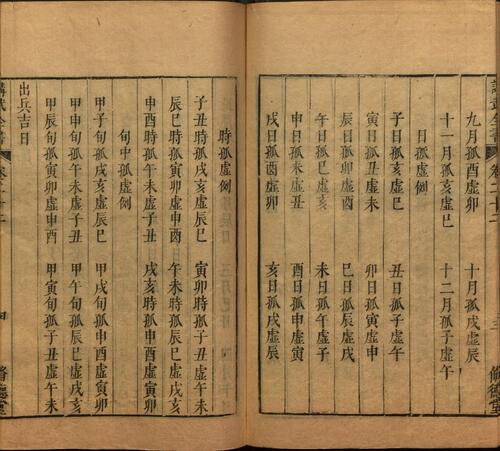 九月孤酉虛卯　十月孤戌虛辰
十一月孤亥虛巳　十二月孤子虛午
日孤虛例
子日孤亥虛巳　丑日孤子虛午
寅日孤丑虛未　卯日孤寅虛申
辰日孤卯虛酉　巳日孤辰虛戌
午日孤巳虛亥　未日孤午虛子
申日孤未虛丑　酉日孤申虛寅
戌日孤酉虛卯　亥日孤戌虛辰
時孤虛例
子丑時孤戌亥虛辰巳　寅卯時孤子丑虛午未
辰巳時孤寅卯虛申酉　午未時孤辰巳虛戌亥
申酉時孤午未虛子丑　戌亥時孤申酉虛寅卯
旬中孤虛例
甲子旬孤戌亥虛辰巳　甲戌旬孤申酉虛寅卯
甲申旬孤午未虛子丑　甲午旬孤辰巳虛戌亥
甲辰旬孤寅卯虛申酉　甲寅旬孤子丑虛午未
出兵吉日
講武全書